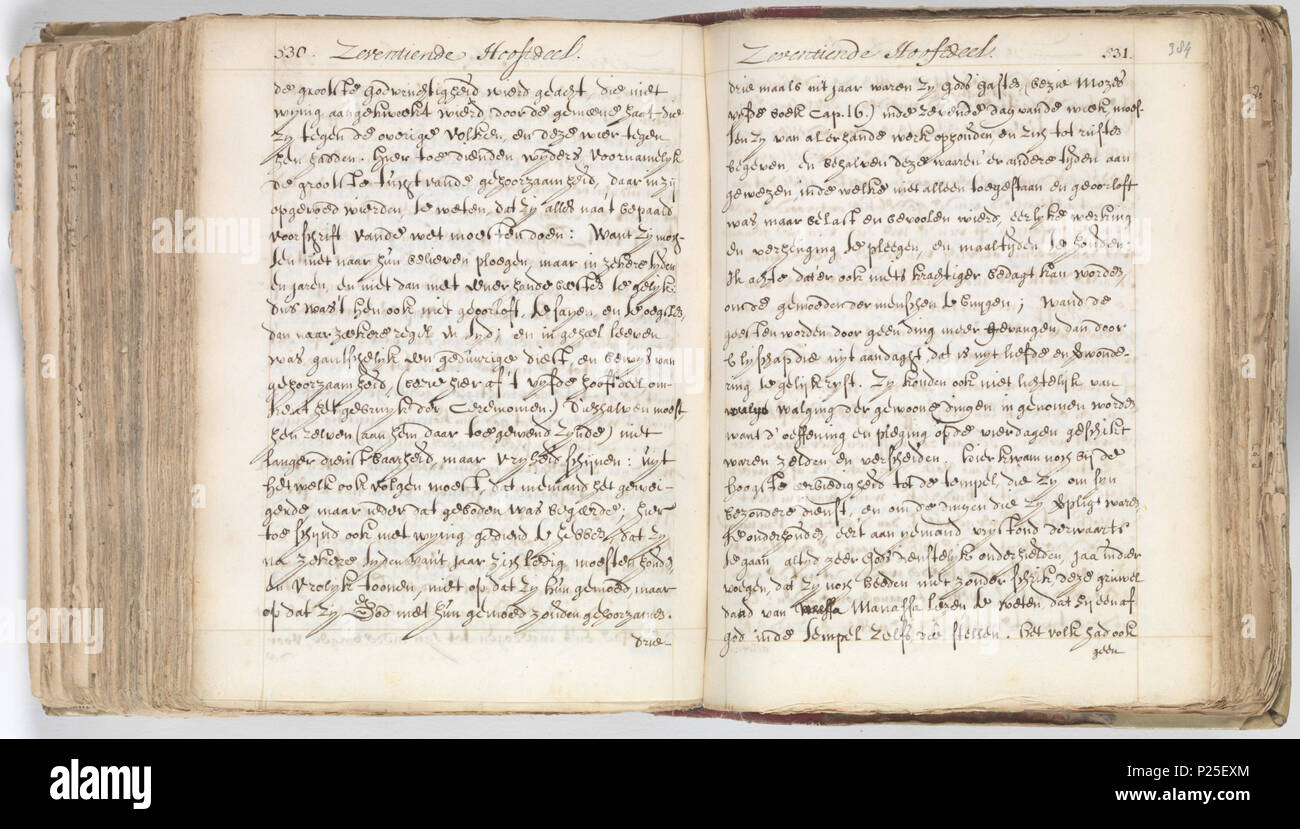 530. Zeventiende Hoofdeel.
de grootste Godvruchtigheid wierd geacht, die niet
wijnig aangekweekt wierd, door de gemeene haat, die
zy tegen de overige Volken, en deze weer tegen
hen hadden. Hier toe dienden wyders voornamelyk
de grootste tucht vande gehoorzaamheid, daar in zij
opgevoed wierden, te weten, dat zy alles na 't bepaald
voorschrift vande wet moesten doen: Want zy moch-
ten niet naar hun believen ploegen, maar in zekere tyden
en jaren, en niet dan met eenerhande beesten te gelyk:
dus was 't hen ook niet geoorloft, te sayen, en te oegsten,
dan naar zeekere regel en tyd; en in geheel leeven
was gantschelyk een geduirige dienst, en bewys van
gehoorzaamheid, (bezie hier af 't vyfde hooftdeel om-
trent het gebruyk der Ceremonien.) Dieshalven moest
hen zelven (aan hem daar toe gewend zynde) niet
langer dienstbaarheid, maar vryheid schijnen: uyt
het welk ook volgen moest, dat niemand het gewei-
gerde maar ieder dat geboden was begeerde; hier
toe schijnd ook niet wynig gediend te hebben, dat zy
na zekere tyden van 't jaar zich ledig moesten houden,
en vrolyk toonen, niet op dat zy hun gemoed maar
op dat zy God met hun gemoed zouden gehoorzamen.
drie-
Zeventiende Hoofdeel. 531. 384
drie maals in 't jaar waren zy Gods gasten, bezie Mozes
vyfde boek Cap. 16.) inde zevende dag vande week moes-
ten zy van alerhande werk ophouden en zich tot rust
begeven, en behalven deze waaren 'er andere tijden aan
gewezen, inde welke niet alleen toegestaan en geoorloft
was maar belast en bevoolen wierd, eerlyke werking
en verheuging te pleegen, en maaltijden te houden.
Ik achte dat er ook niets krachtiger bedagt kan worden,
om de gemoeden der menschen te buygen; Wand de
geesten worden door geen ding meer gevangen, dan door
blyschap die uyt aandaght, dat is uyt liefde en Verwonde-
ring te gelijk ryst. Zy konden ook niet lichtelijk van
walging der gewoone dingen in genomen worden,
want d' oeffening en pleging op de vierdagen geschikt
waren zelden en verscheiden. hier kwam noch bij de
hoogste eerbiedigheid tot de tempel, die zy om syn
bezondere dienst, en om de dingen die zy verpligt waren
te onderhouden, eert aan yemand vrystond derwaarts
te gaan, altyd zeer Godsdienstelyk onderhielden, jaa inder
voegen, dat zy noch heeden niet zonder schrik deze gruwel
daad van Manassa lezen te weten, dat hij een af-
god inde Tempel zelfs dee stellen. het volk had ook
geen
alamy
Image ID: P25EXM
www.alamy.com